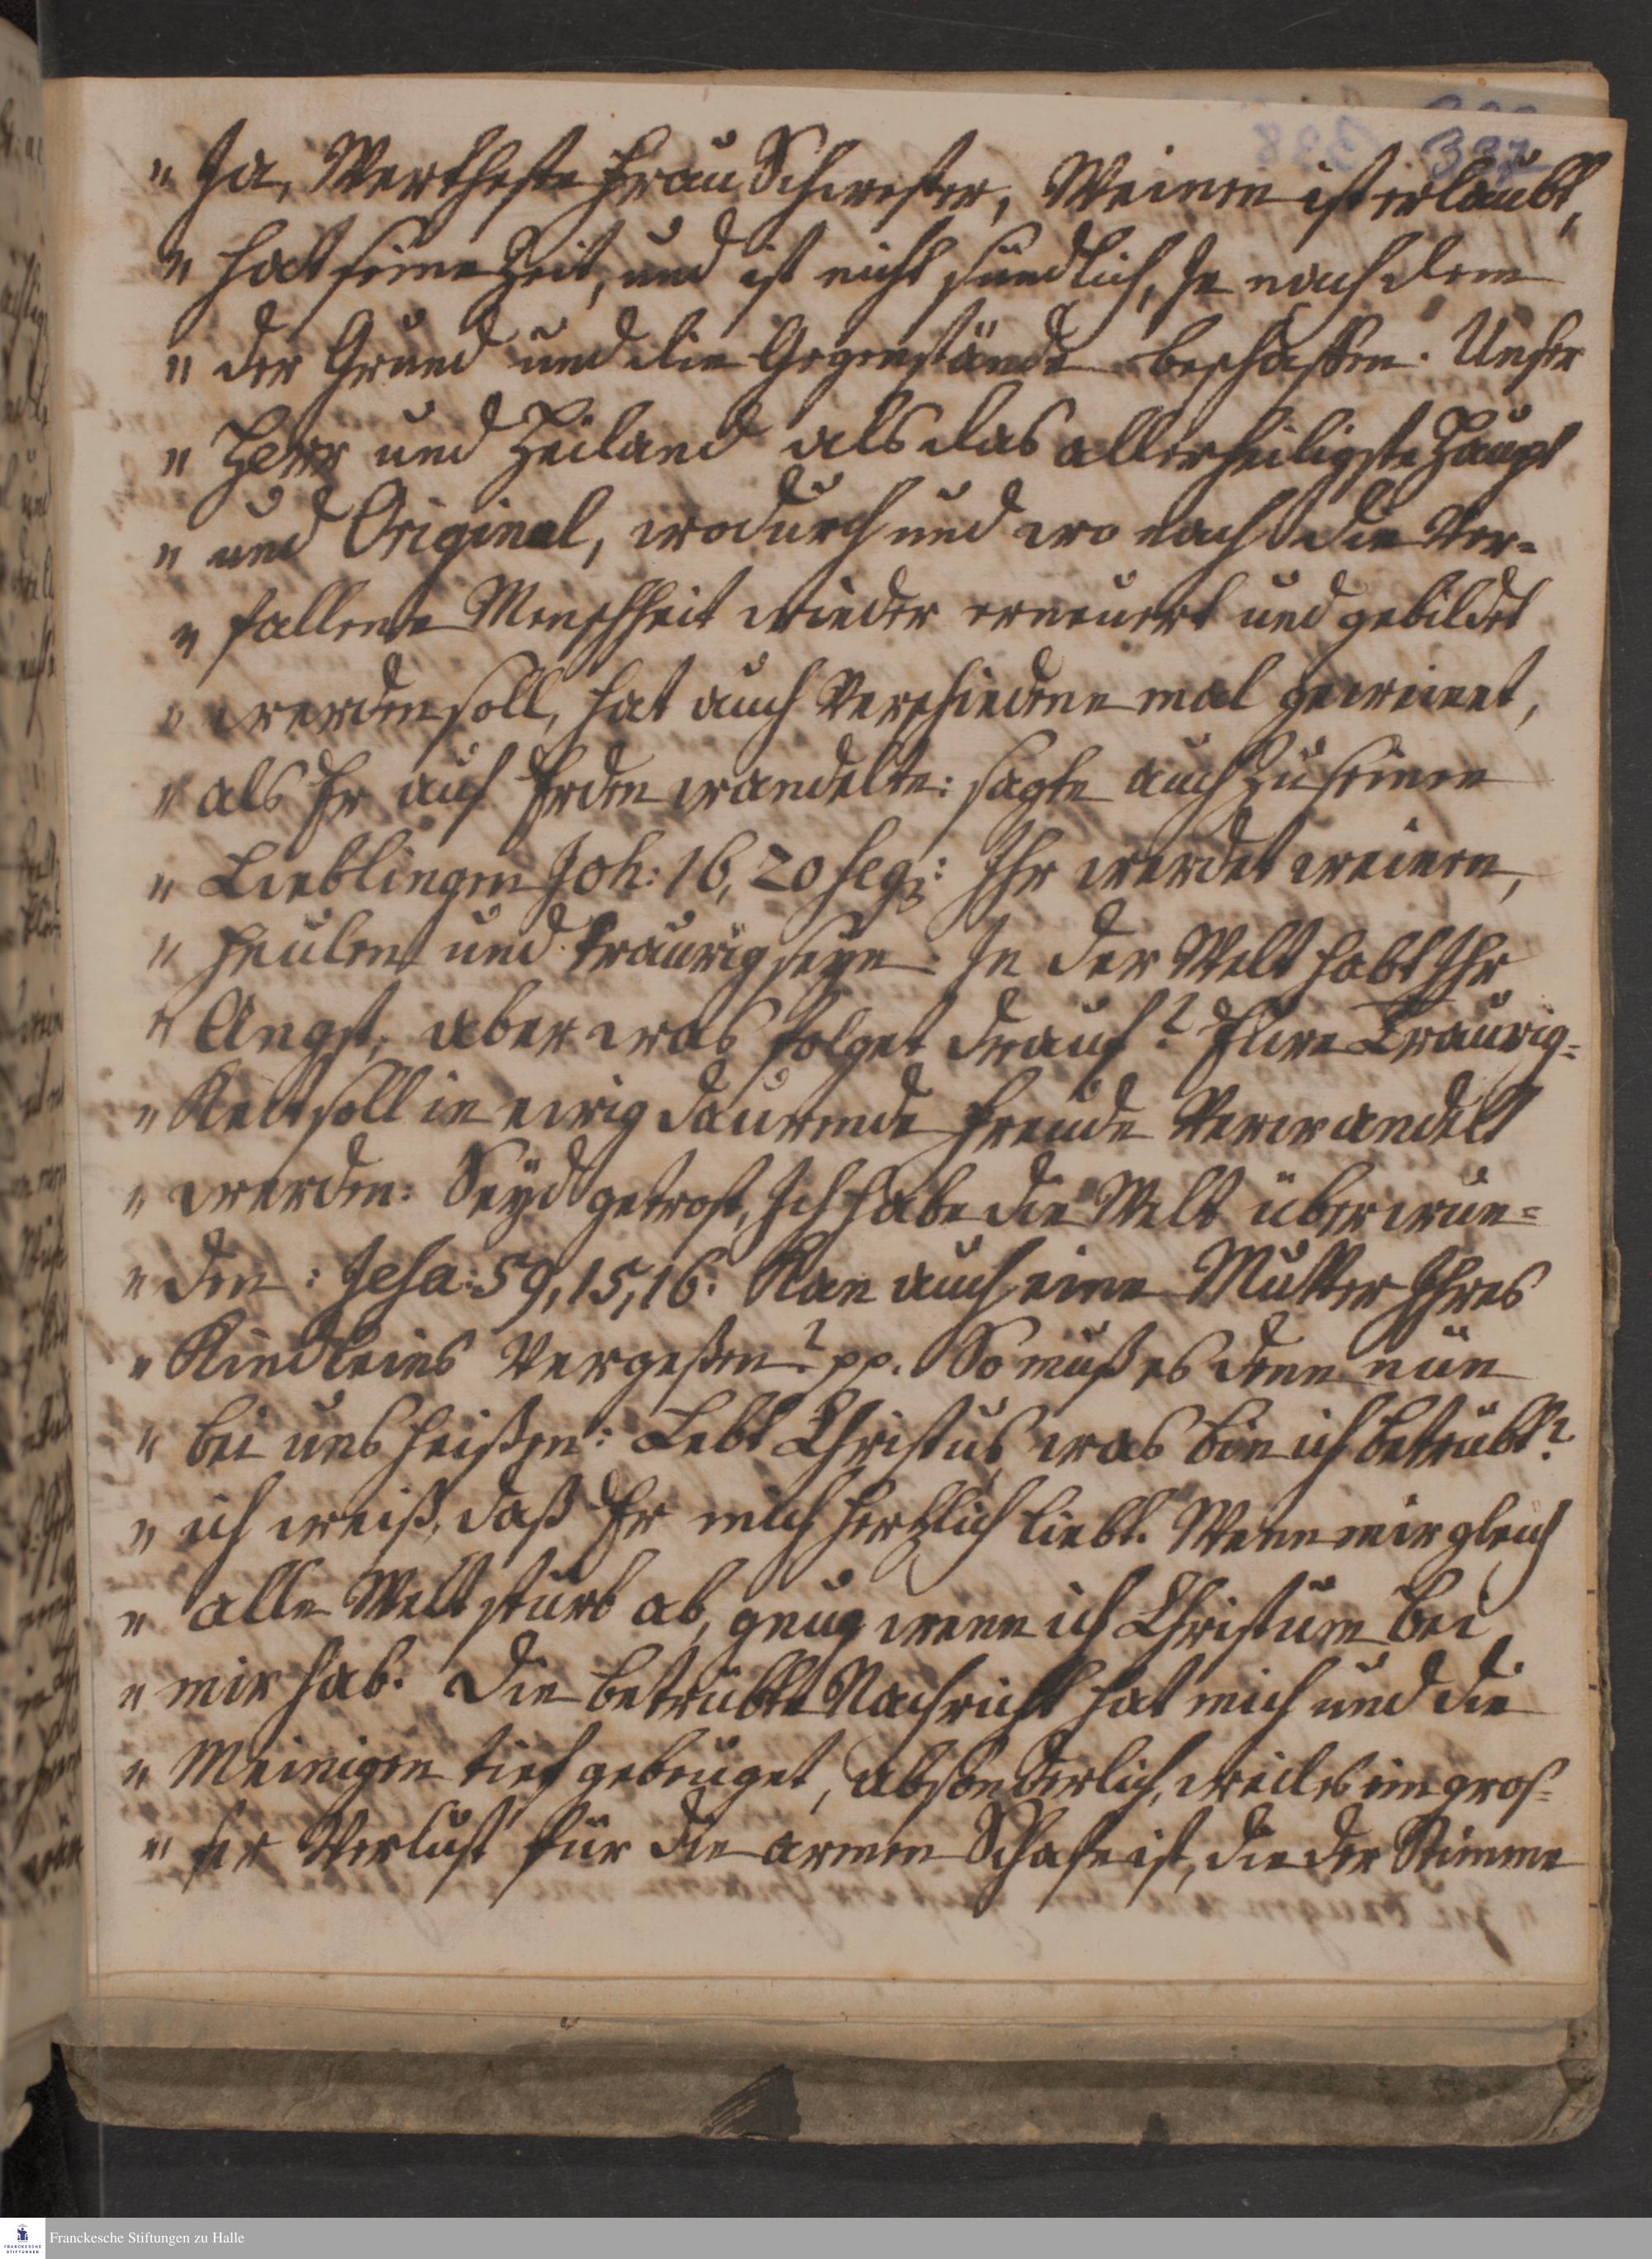 " Ja, Wertheste Frau Schwester, Weinen ist erlaubt,
" hat seine Zeit, und ist nicht sündlich, Je nach dem
" der Grund und die Gegenstände beschaffen. Unser
" Herr und Heiland als das allerheiligste Haupt
" und Original, wodurch und wo nach die Ver-
" fallene Menschheit wieder erneuert und gebildet
" werden soll, hat auch Verschiedene mal geweinet,
" als Er auf Erden wandelte: sagte auch zu seinen
" Lieblingen Joh: 16, 20 seq: Ihr werdet weinen,
" heulen und traurig seyn. In der Welt habt Ihr
" Angst, aber was folget drauf? Eure Traurig-
" Keit soll in ewig daurende Freude Verwandelt
" werden: Seyd getrost, Ich habe die Welt überwun-
" den: Jesa: 59, 15, 16. Kan auch eine Mutter Ihres
" Kindleins Vergeßen? pp. So muß es denn nun
" bei uns heißen: Lebt Christus was bin ich betrübt?
" ich weiß, daß Er mich hertzlich liebt. Wenn mir gleich
" alle Welt stürb ab, gnug wenn ich Christum bei
" mir hab. Die betrübte Nachricht hat mich und die
" Meinigen tief gebeuget, absonderlich, weil es ein gros-
" ser Verlust für die armen Schafe ist, die der Stimme
Franckesche Stiftungen zu Halle